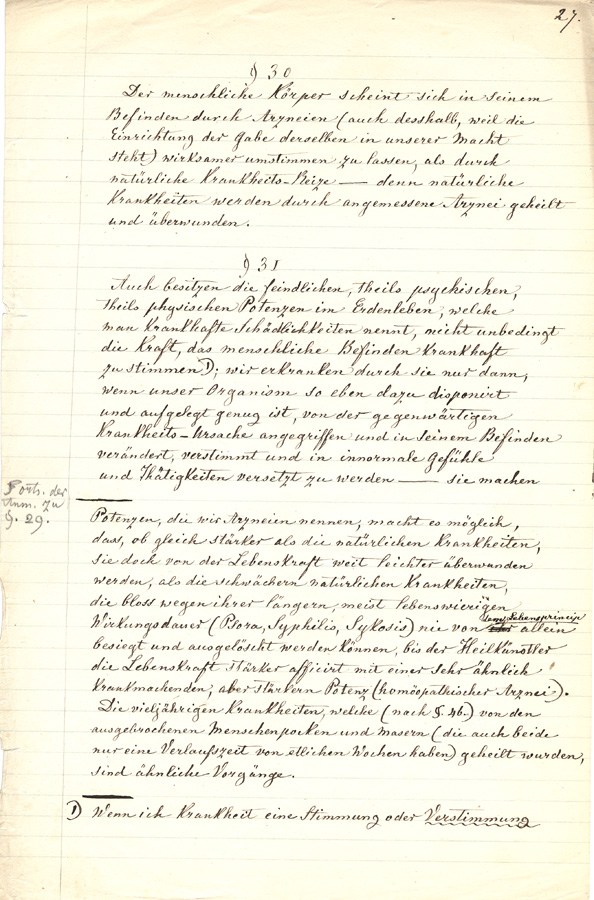 27.
§ 30
Der menschliche Körper scheint sich in seinem
Befinden durch Arzneien (auch desshalb, weil die
Einrichtung der Gabe derselben in unserer Macht
steht) wirksamer umstimmen zu lassen, als durch
natürliche Krankheits-Reize — denn natürliche
Krankheiten werden durch angemessene Arznei geheilt
und überwunden.
§ 31
Auch besitzen die feindlichen, theils psychischen,
theils physischen Potenzen im Erdenleben, welche
man krankhafte Schädlichkeiten nennt, nicht unbedingt
die Kraft, das menschliche Befinden krankhaft
zu stimmen 1); wir erkranken durch sie nur dann,
wenn unser Organism so eben dazu disponirt
und aufgelegt genug ist, von der gegenwärtigen
Krankheits-Ursache angegriffen und in seinem Befinden
verändert, verstimmt und in innormale Gefühle
und Thätigkeiten versetzt zu werden — sie machen
Forts. der
Anm. zu
§. 29.
Potenzen, die wir Arzneien nennen, macht es möglich,
dass, ob gleich stärker als die natürlichen Krankheiten,
sie doch von der Lebenskraft weit leichter überwunden
werden, als die schwächern natürlichen Krankheiten,
die bloss wegen ihrer längern, meist lebenswierigen
Lebensprincip
Wirkungsdauer (Psora, Syphilis, Sykosis) nie von allein
besiegt und ausgelöscht werden können, bis der Heilkünstler
die Lebenskraft stärker afficirt mit einer sehr ähnlich
krankmachenden, aber stärkern Potenz (homöopathischer Arznei).
Die vieljährigen Krankheiten, welche (nach §. 46.) von den
ausgebrochenen Menschenpocken und Masern (die auch beide
nur eine Verlaufszeit von etlichen Wochen haben) geheilt wurden,
sind ähnliche Vorgänge.
1) Wenn ich Krankheit eine Stimmung oder Verstimmung